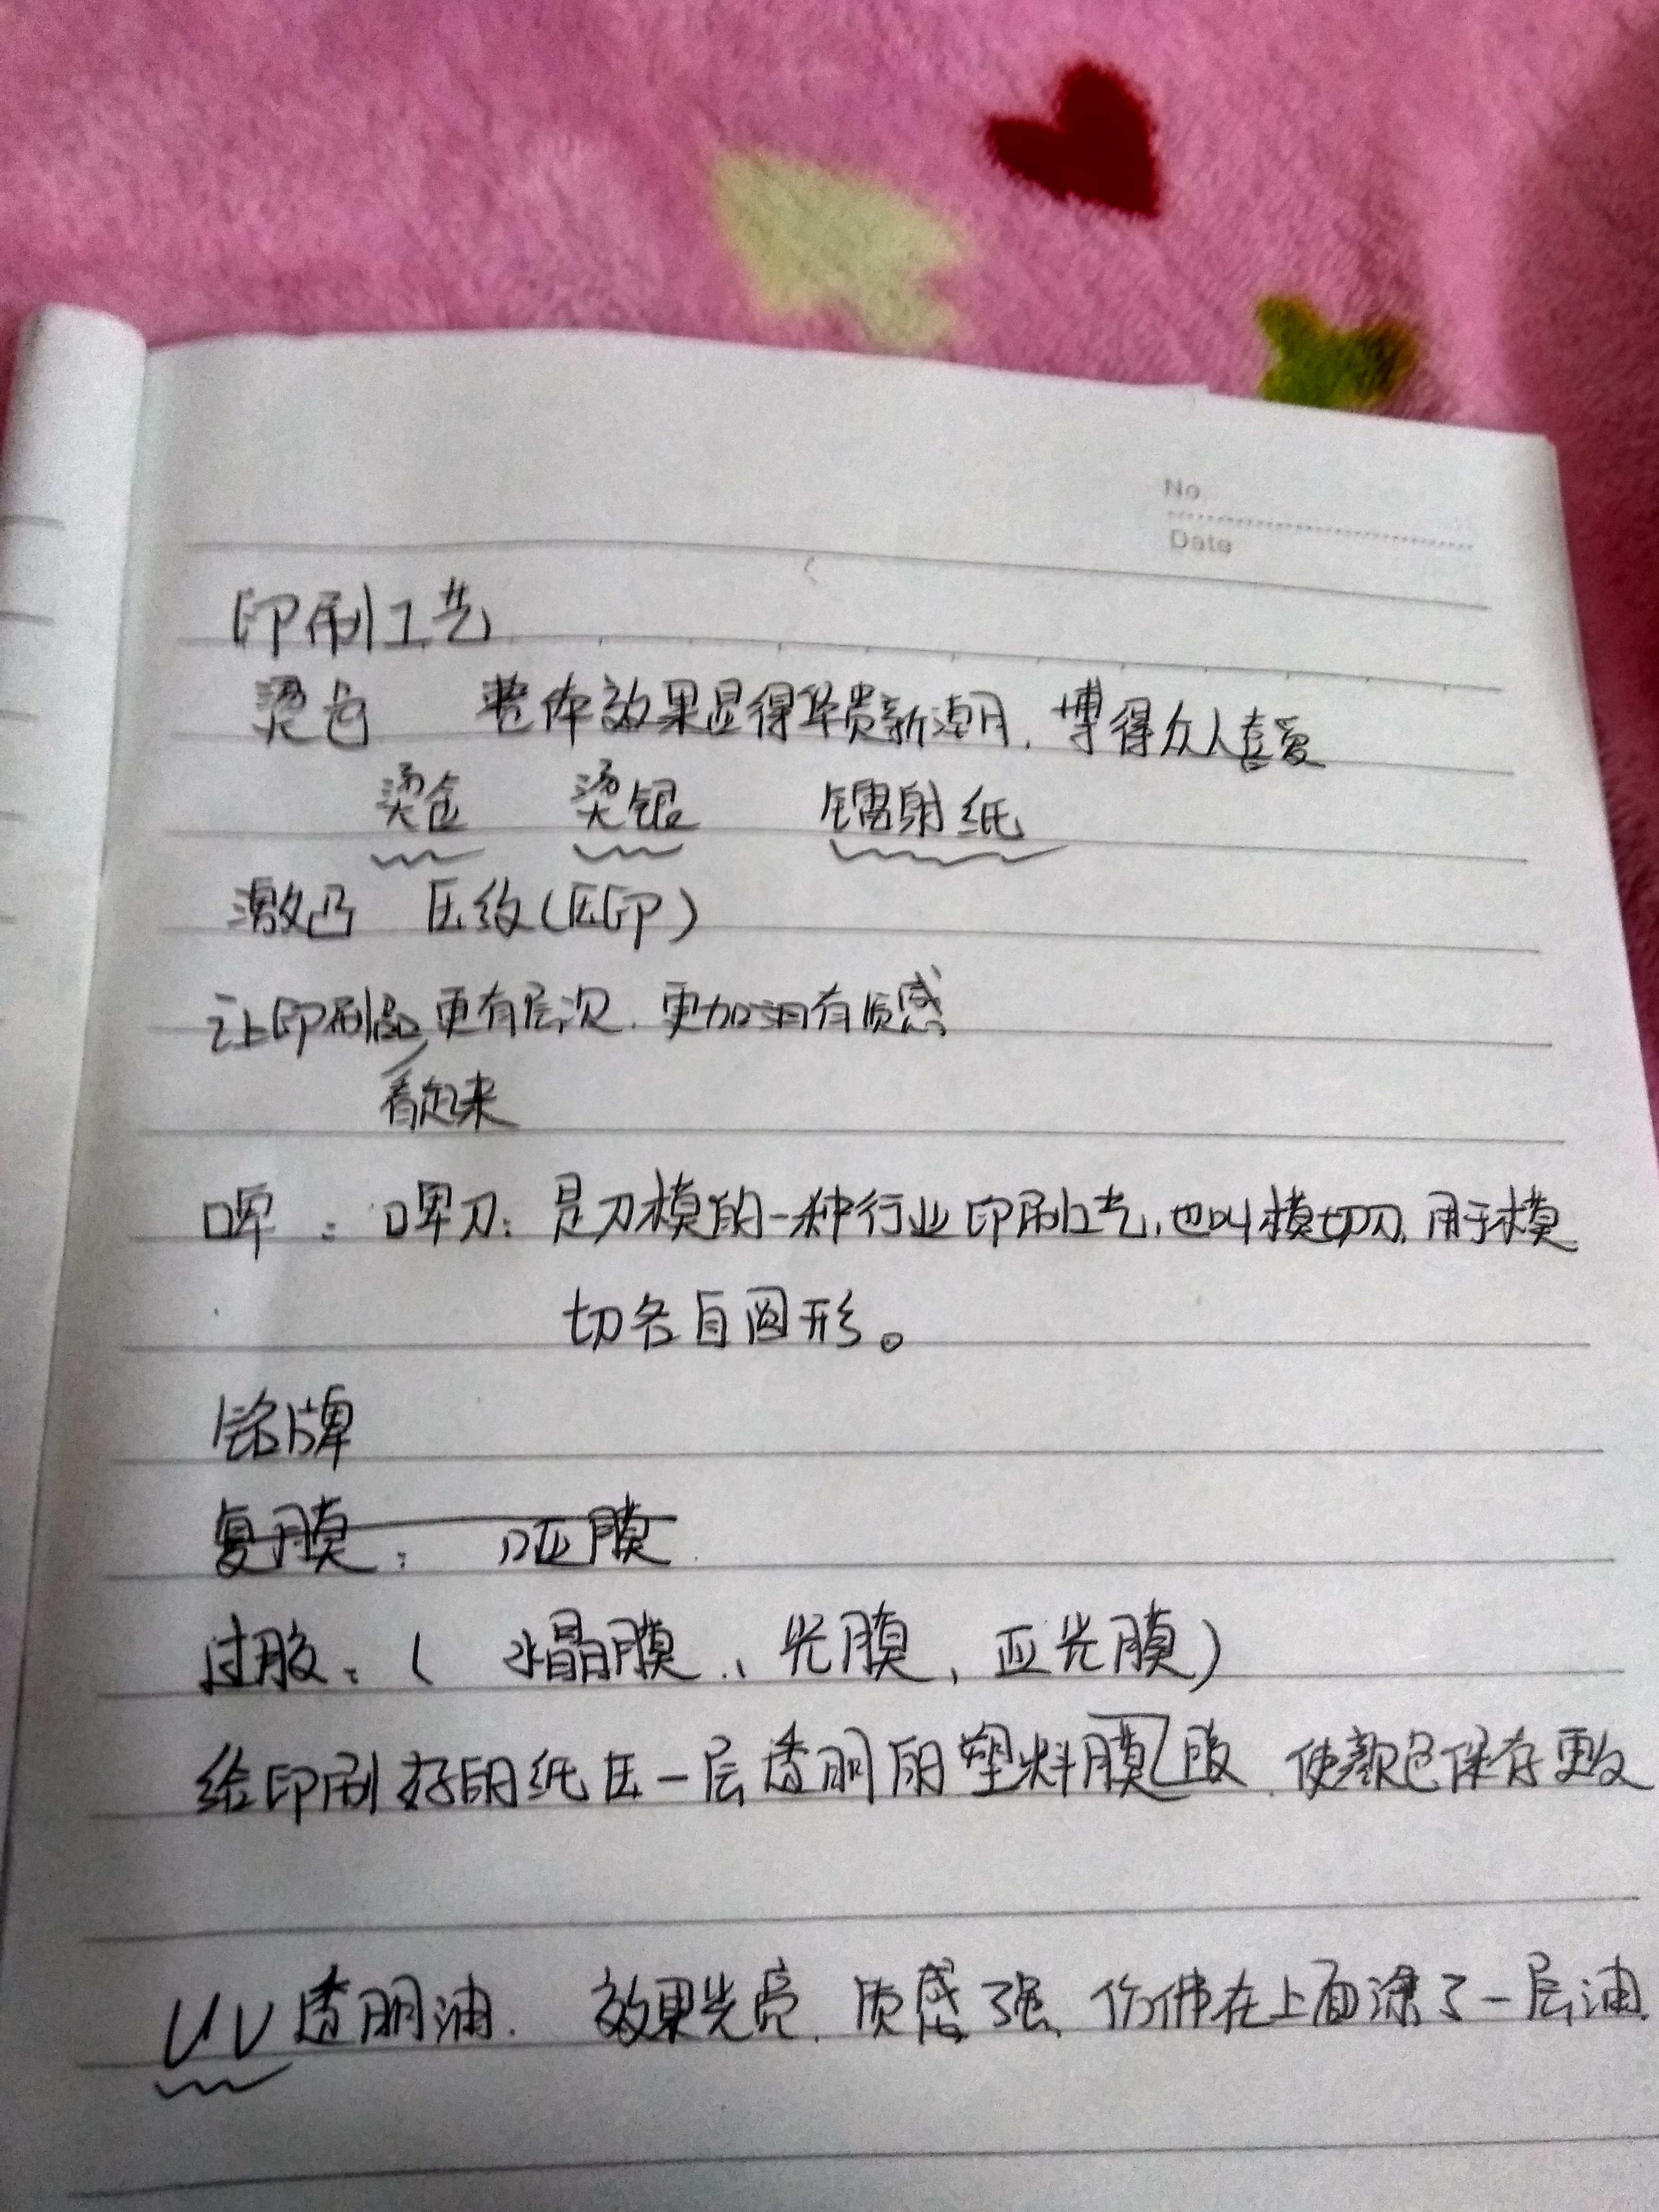 No
Date
印刷工艺
烫色 整体效果显得华贵新潮，博得众人喜爱
烫金 烫银 镭射纸
激凸 压纹(压印)
让印刷品更有层次，更加有质感
看起来
啤：啤刀：是刀模的一种行业印刷工艺，也叫模切刀，用于模
切各自图形。
铭牌
复膜：哑膜
过胶：( 水晶膜、光膜、亚光膜)
给印刷好的纸压一层透明的塑料膜胶，使颜色保存更久
UV透明油. 效果光亮，质感强，仿佛在上面涂了一层油.